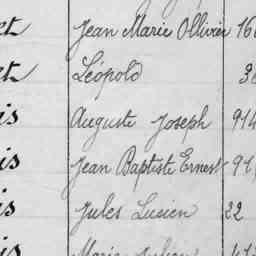 et Jean Marie Ollivier 160
et Léopold 36
is Auguste Joseph 914
is Jean Baptiste Ernest 91
is Jules Lucien 22
is Marie